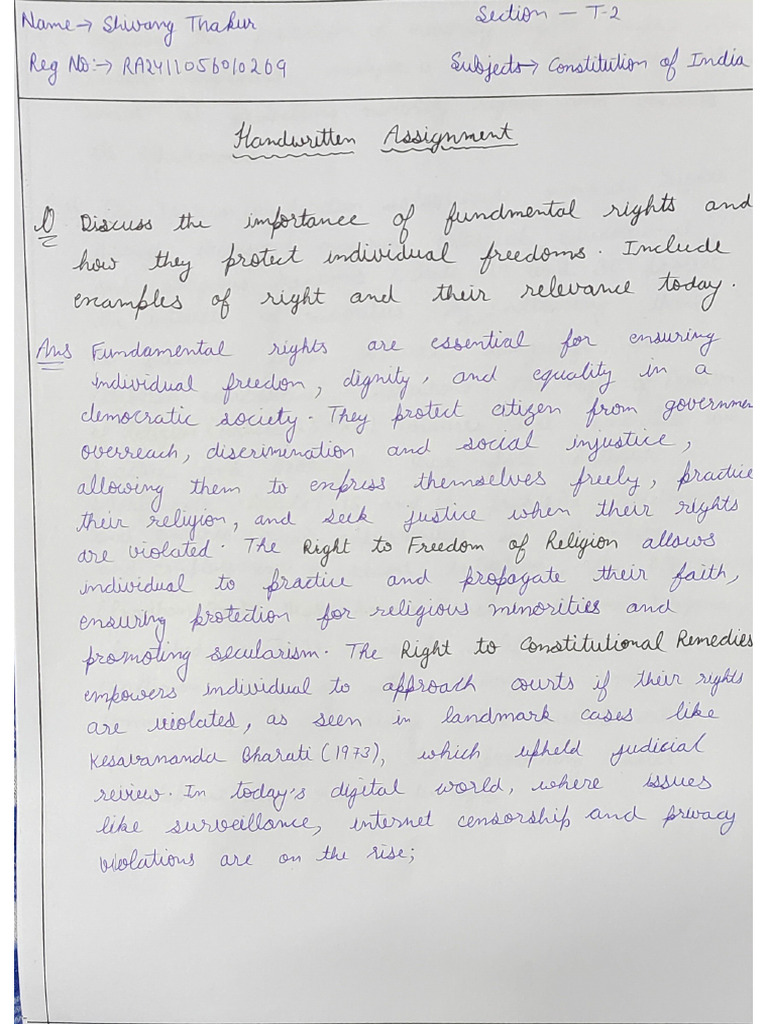 Name → Shivang Thakur
Section — T-2
Reg No:→ RA2411056010269
Subject → Constitution of India
Handwritten Assignment
Q Discuss the importance of fundmental rights and
how they protect individual freedoms. Include
examples of right and their relevance today.
Ans Fundamental rights are essential for ensuring
individual freedon, dignity, and equality in a
democratic society. They protect citizen from governmen
overreach, discrimination and social injustice,
allowing them to express themselves freely, practice
their religion, and seek justice when their rights
are violated. The Right to Freedom of Religion allows
individual to practice and propagate their faith,
ensuring protection for religious minorities and
promoting secularism. The Right to Constitutional Remedies
empowers individual to approach courts if their rights
are violated, as seen in landmark cases like
Kesavananda Bharati (1973), which upheld judicial
review. In today's digital world, where issues
like surveillance, internet censorship and privacy
violations are on the rise;